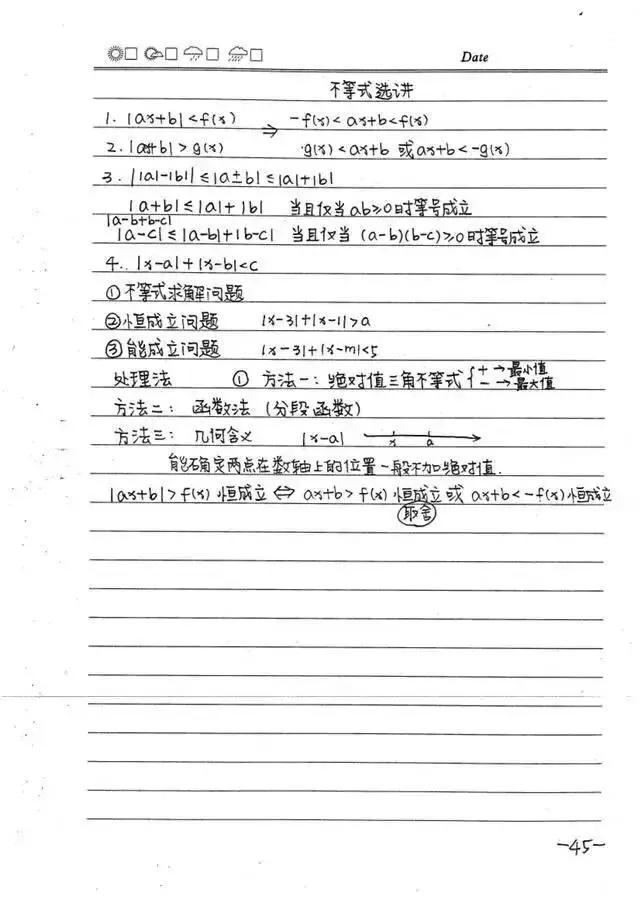 Date
不等式选讲
1. |ax+b|<f(x) ⇒ -f(x)<ax+b<f(x)
2. |ax+b|>g(x) g(x)<ax+b 或ax+b<-g(x)
3. ||a|-|b||≤|a±b|≤|a|+|b|
|a+b|≤|a|+|b| 当且仅当ab≥0时等号成立
|a-b+b-c|
|a-c|≤|a-b|+|b-c| 当且仅当 (a-b)(b-c)≥0时等号成立
4. |x-a|+|x-b|<c
①不等式求解问题
②恒成立问题 |x-3|+|x-1|>a
③能成立问题 |x-3|+|x-m|<5
处理法 ① 方法一: 绝对值三角不等式{+→最小值
-→最大值
方法二: 函数法 (分段函数)
方法三: 几何含义 |x-a| x a
能确定两点在数轴上的位置一般不加绝对值.
|ax+b|>f(x)恒成立⇔ax+b>f(x)恒成立或 ax+b<-f(x)恒成立
取舍
-45-